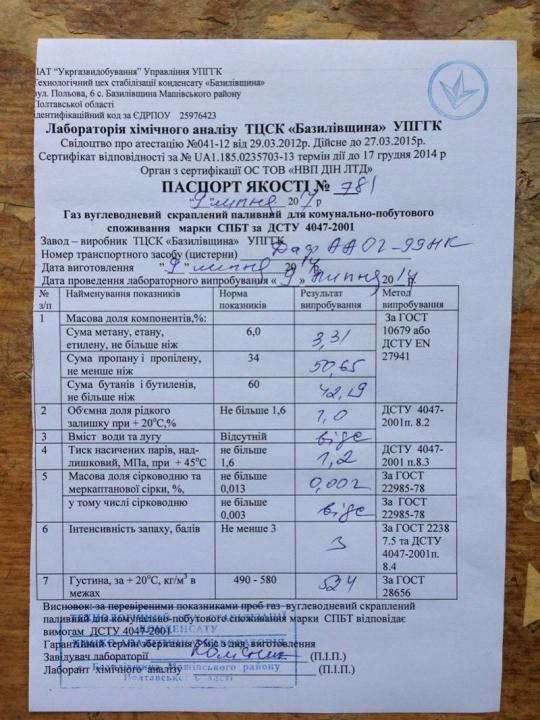 ПАТ "Укргазвидобування" Управління УПГГК
Технологічний цех стабілізації конденсату «Базилівщина»
вул. Польова, 6 с. Базилівщина Машівського району
Полтавської області
Ідентифікаційний код за ЄДРПОУ 25976423
Лабораторія хімічного аналізу ТЦСК «Базилівщина» УПГГК
Свідоцтво про атестацію №041-12 від 29.03.2012р. Дійсне до 27.03.2015р.
Сертифікат відповідності за № UA1.185.0235703-13 термін дії до 17 грудня 2014 р
Орган з сертифікації ОС ТОВ «НВП ДІН ЛТД»
ПАСПОРТ ЯКОСТІ № 781
"9" липня 2014 р
Газ вуглеводневий скраплений паливний для комунально-побутового
споживання марки СПБТ за ДСТУ 4047-2001
Завод – виробник ТЦСК «Базилівщина» УПГГК
Номер транспортного засобу (цистерни) Даф АА 02-99 НК
Дата виготовлення "9" липня 2014 р.
Дата проведення лабораторного випробування «9» липня 2014
№ з/п Найменування показників Норма показників Результат випробування Метод випробування
1 Масова доля компонентів,%: За ГОСТ 10679 або ДСТУ EN 27941
Сума метану, етану, етилену, не більше ніж 6,0 3,31
Сума пропану і пропілену, не менше ніж 34 50,65
Сума бутанів і бутиленів, не більше ніж 60 42,19
2 Об'ємна доля рідкого залишку при + 20°С,% Не більше 1,6 1,0 ДСТУ 4047-2001п. 8.2
3 Вміст води та лугу Відсутній відс
4 Тиск насичених парів, над-лишковий, МПа, при + 45°С не більше 1,6 1,2 ДСТУ 4047-2001 п.8.3
5 Масова доля сірководню та меркаптанової сірки, %, не більше 0,013 0,002 За ГОСТ 22985-78
у тому числі сірководню не більше 0,003 відс За ГОСТ 22985-78
6 Інтенсивність запаху, балів Не менше 3 3 За ГОСТ 2238 7.5 та ДСТУ 4047-2001п. 8.4
7 Густина, за + 20°С, кг/м³ в межах 490 - 580 534 За ГОСТ 28656
Висновок: за перевіреними показниками проб газ вуглеводневий скраплений
паливний для комунально-побутового споживання марки СПБТ відповідає
вимогам ДСТУ 4047-2001
Гарантійний термін зберігання 3 міс з дня виготовлення
Завідувач лабораторії (П.І.П.)
Лаборант хімічного аналізу (П.І.П.)
КОНДЕНСАТУ
с. Базилівщина Машівського району
Полтавської області